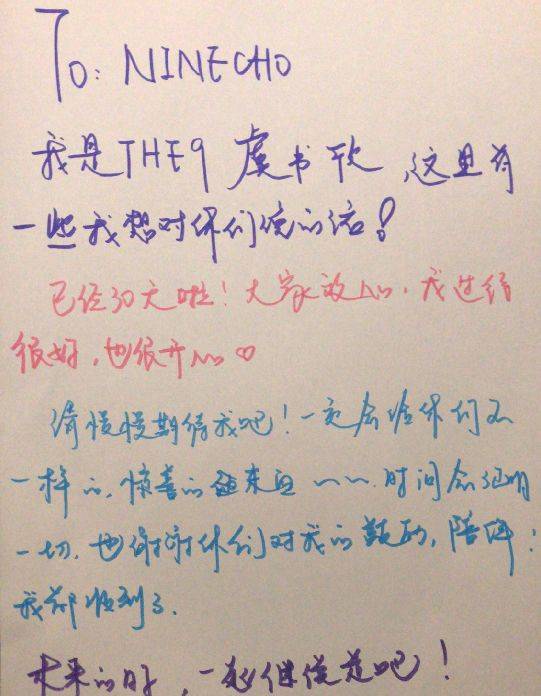 To: NINECHO
我是THE9 虞书欣,这里有
一些我想对你们说的话!
已经30天啦!大家放心,我过得
很好,也很开心♡
请慢慢期待我吧!一定会给你们不
一样的,惊喜的 ~~.时间会证明
一切.也谢谢你们对我的鼓励,陪伴:
我都收到了.
未来的日子,一起继续走吧!